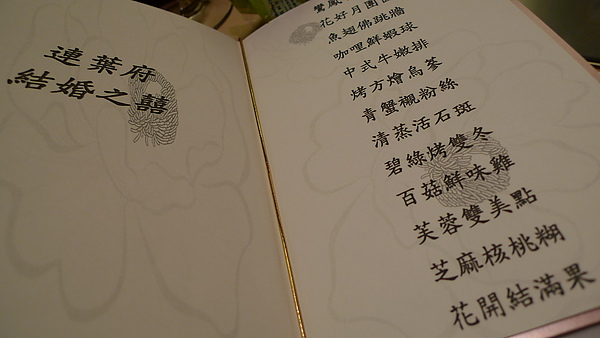 連葉府
結婚之囍
花好月團圓
魚翅佛跳牆
咖哩鮮蝦球
中式牛嫩排
烤方燴烏蔘
青蟹襯粉絲
清蒸活石斑
碧綠烤雙冬
百菇鮮味雞
芙蓉雙美點
芝麻核桃糊
花開結滿果